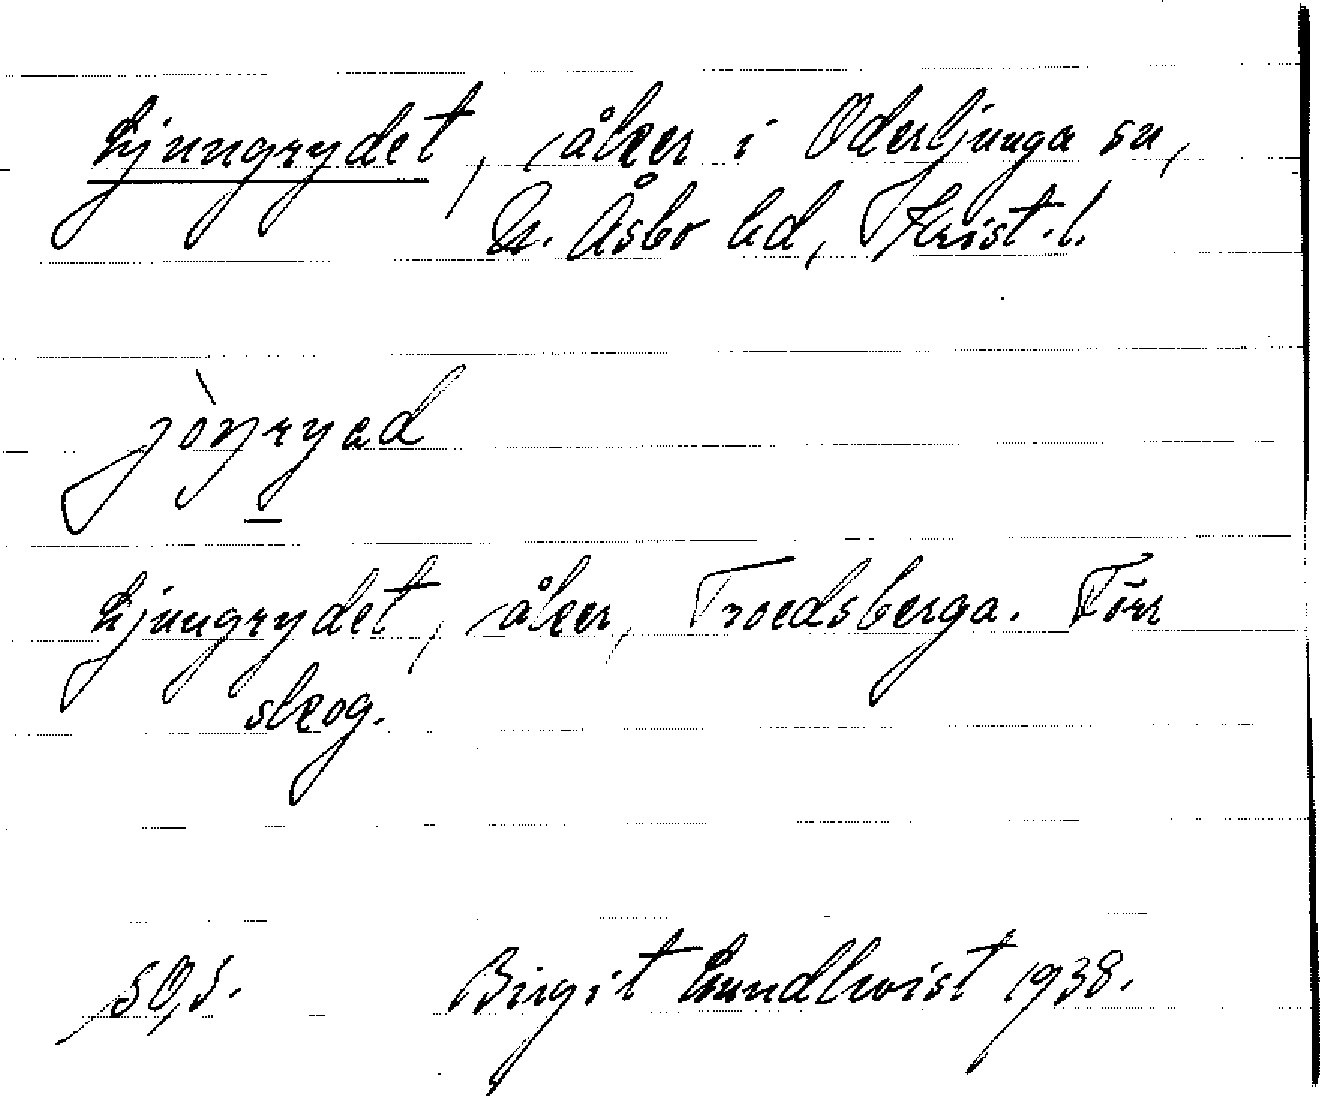 Ljungrydet, åker i Oderljunga sn,
N. Åsbo hd, Krist. l.
jòŋryəd
Ljungrydet, åker, Troedsberga. Förr
skog.
Birgit Lundkvist 1938.